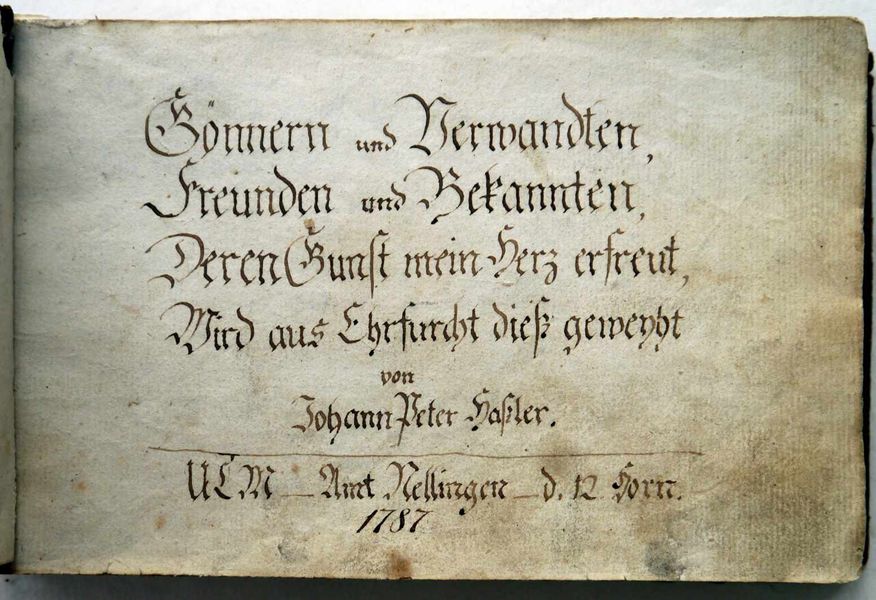 Gönnern und Verwandten,
Freunden und Bekannten,
Deren Gunst mein Herz erfreut,
Wird aus Ehrfurcht dieß geweyht
von
Johann Peter Haßler.
ULM — Amt Nellingen — d. 12 Horn.
1787